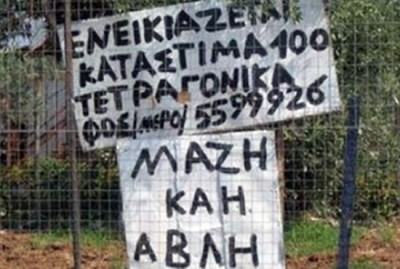 ΕΝΕΙΚΙΑΖΕΤΑΙ
ΚΑΤΑΣΤΙΜΑ 100
ΤΕΤΡΑΓΟΝΙΚΑ
ΦΟΣ/ΜΕΡΟ/5599926
ΜΑΖΗ
ΚΑΗ
ΑΒΛΗ